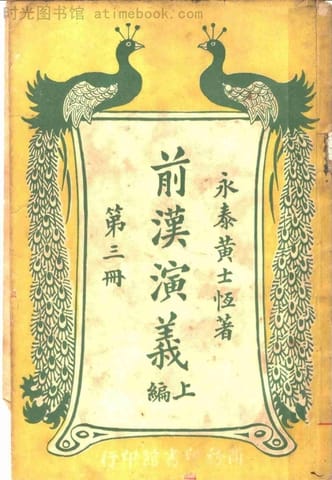 时光图书馆 - atimebook.com
永泰黄士恆著
前漢演義
上編
第三冊
行印館書印務商